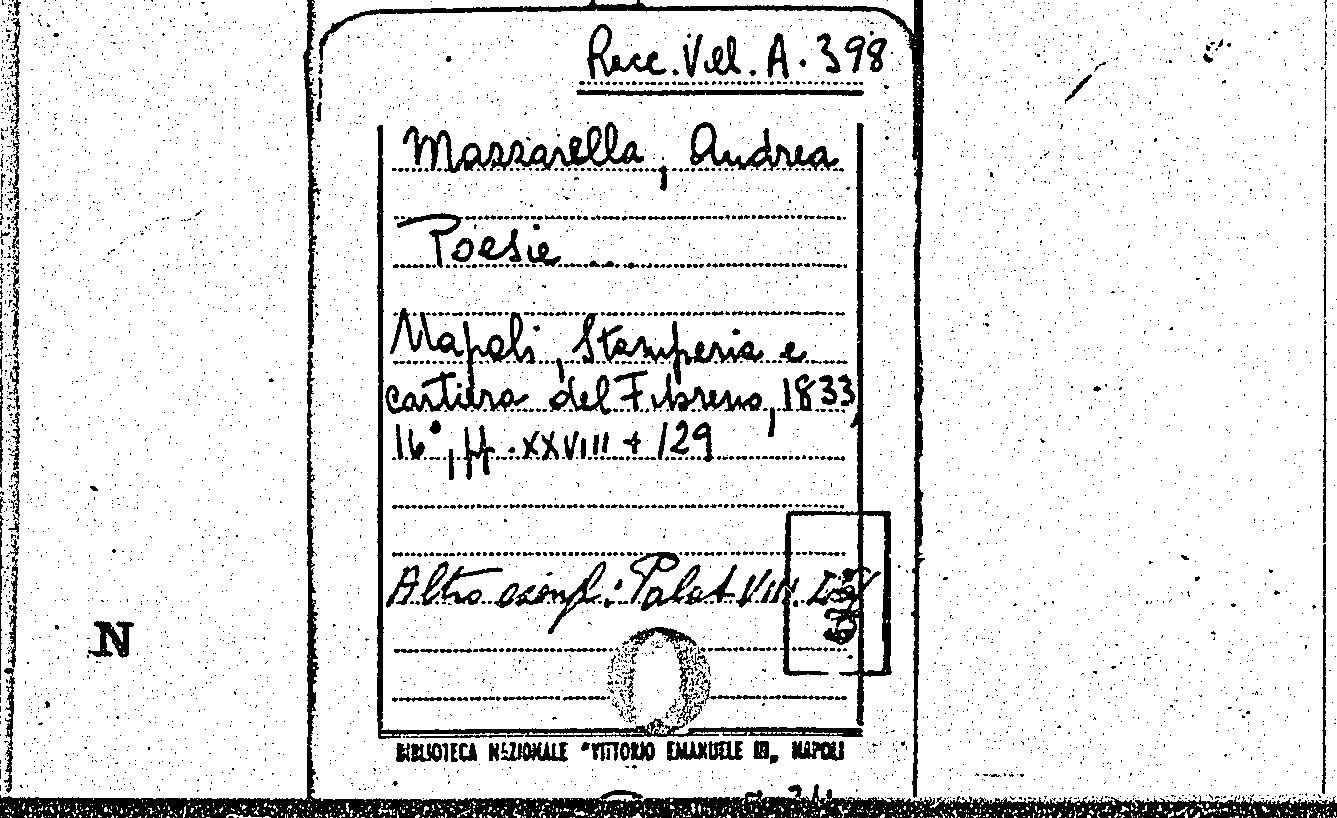 Racc. Vill. A. 398
Mazzarella, Andrea
Poesie ...
Napoli, Stamperia e
cartiera del Fibreno, 1833,
16°, pp. XXVIII + 129
Altro esempl.: Palat. VIII.
N
BIBLIOTECA NAZIONALE "VITTORIO EMANUELE III„ NAPOLI